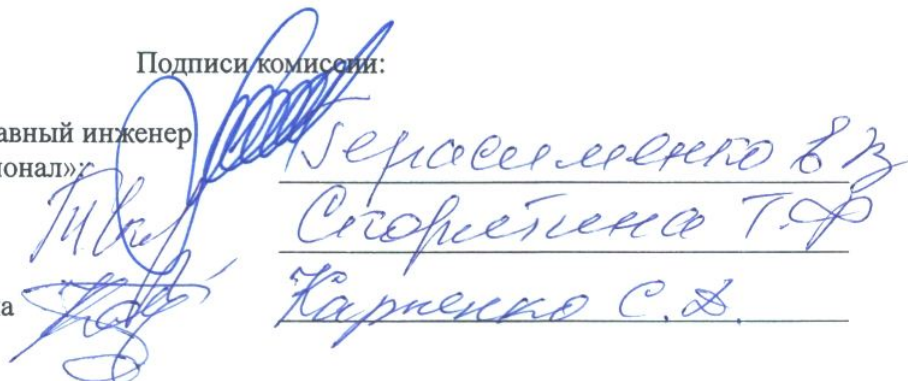 Подписи комиссии:
авный инженер
ионал»:
Герасименко В В
Т.Ф
на
Карпенко С.В.